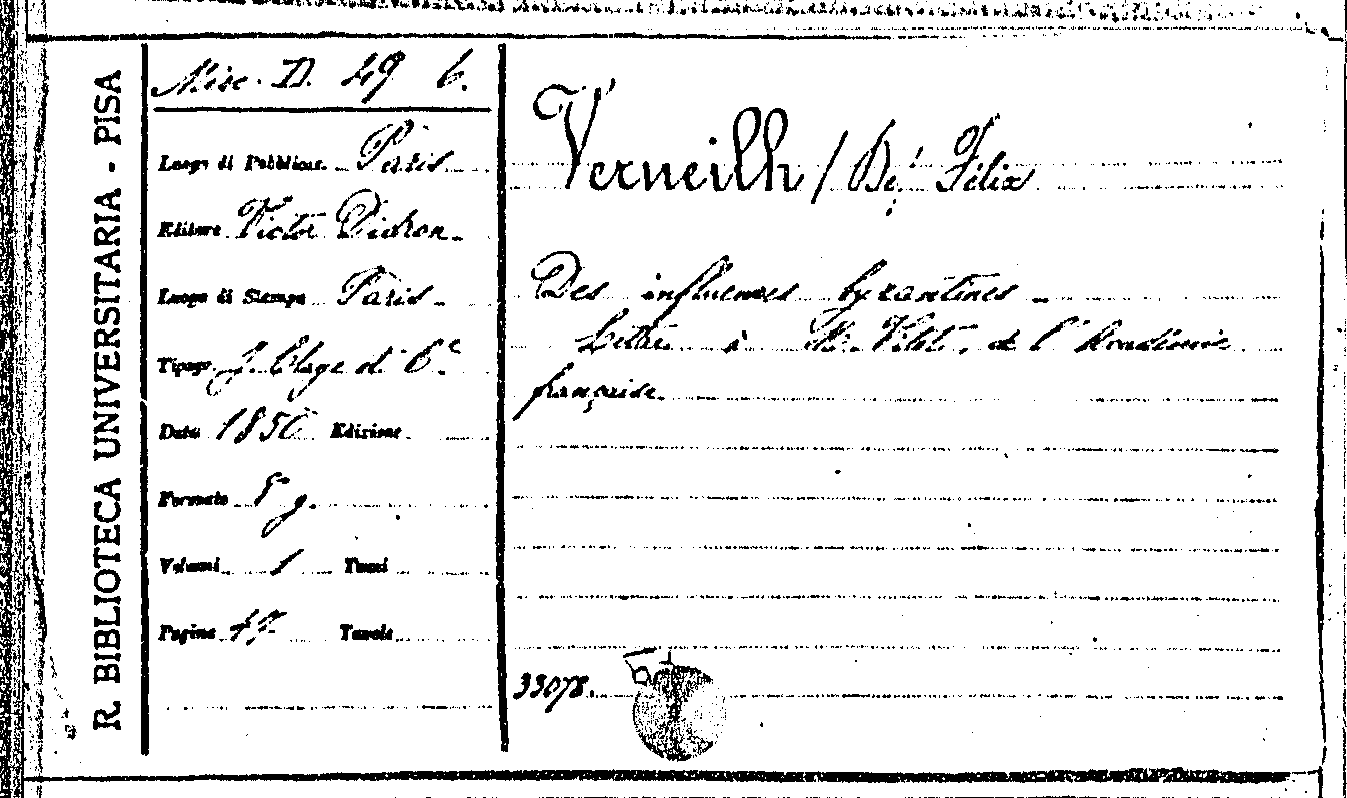 R. BIBLIOTECA UNIVERSITARIA - PISA
Misc. D. 49 6.
Luogo di Pubblicaz. Paris
Editore Victor Didron
Luogo di Stampa Paris
Tipogr. J. Claye et C.e
Data 1856 Edizione
Formato 8° g.
Volumi 1 Tomi
Pagine Tavole
Verneilh / De, Félix
Des influences byzantines
Lettre à Mr. Vitet, de l'Académie
française.
33078.